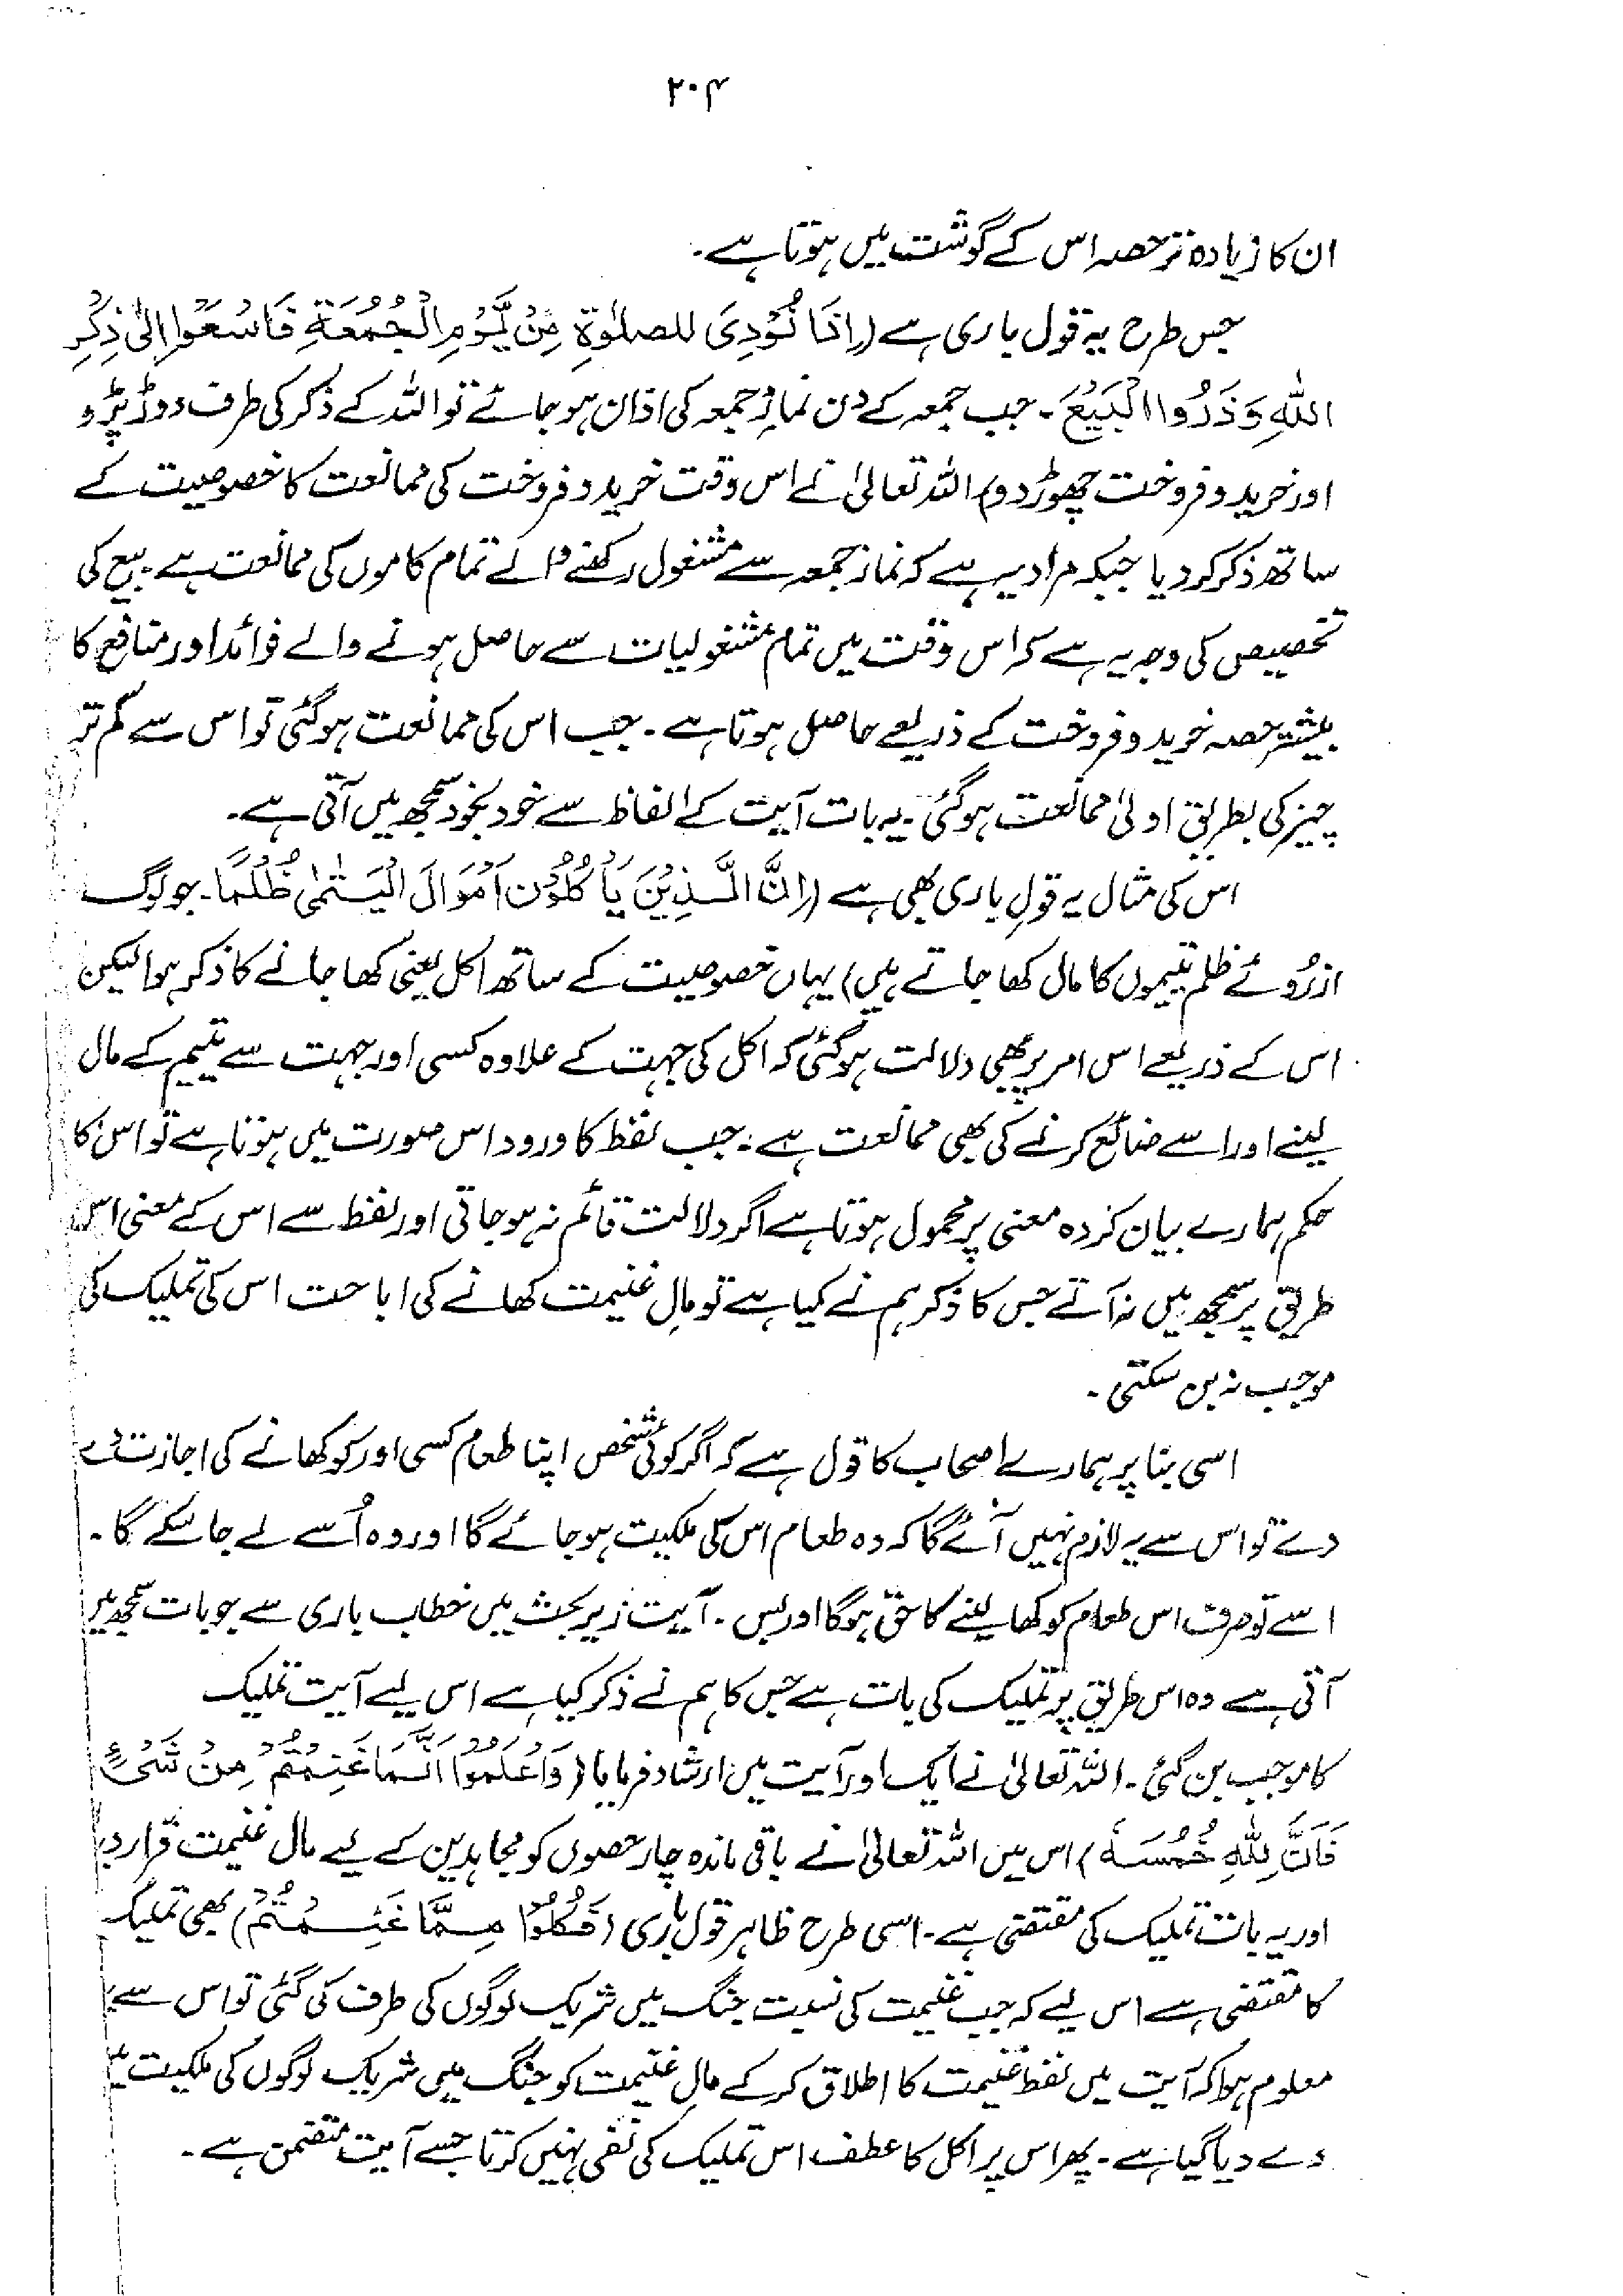 ۲۰۴
ان کا زیادہ تر حصہ اس کے گوشت میں ہوتا ہے۔
جس طرح یہ قول باری ہے (اِذَا نُوْدِیَ للصلوٰۃِ مِنْ یَّوْمِ الْجُمُعَۃِ فَاسْعَوْا اِلیٰ ذِکْرِ
اللّٰہِ وَذَرُوا الْبَیْعَ۔ جب جمعہ کے دن نمازِ جمعہ کی اذان ہو جائے تو اللہ کے ذکر کی طرف دوڑ پڑو
اور خرید و فروخت چھوڑ دو) اللہ تعالیٰ نے اس وقت خرید و فروخت کی ممانعت کا خصوصیت کے
ساتھ ذکر کر دیا جبکہ مراد یہ ہے کہ نماز جمعہ سے مشغول رکھنے والے تمام کاموں کی ممانعت ہے۔ بیع کی
تخصیص کی وجہ یہ ہے کہ اس وقت میں تمام مشغولیات سے حاصل ہونے والے فوائد اور منافع کا
بیشتر حصہ خرید و فروخت کے ذریعے حاصل ہوتا ہے۔ جب اس کی ممانعت ہو گئی تو اس سے کم تر
چیز کی بطریق اولیٰ ممانعت ہو گئی۔ یہ بات آیت کے الفاظ سے خود بخود سمجھ میں آتی ہے۔
اس کی مثال یہ قولِ باری بھی ہے (اِنَّ الَّذِیْنَ یَاْکُلُوْن اَمْوَالَ الْیَتٰمٰی ظُلْمًا۔ جو لوگ
ازرُوئے ظلم یتیموں کا مال کھا جاتے ہیں) یہاں خصوصیت کے ساتھ اکل یعنی کھا جانے کا ذکر ہوا لیکن
اس کے ذریعے اس امر پر بھی دلالت ہو گئی کہ اکل کی جہت کے علاوہ کسی اور جہت سے یتیم کے مال
لینے اور اسے ضائع کرنے کی بھی ممانعت ہے۔ جب لفظ کا ورود اس صورت میں ہوتا ہے تو اس کا
حکم ہمارے بیان کردہ معنی پر محمول ہوتا ہے اگر دلالت قائم نہ ہو جاتی اور لفظ سے اس کے معنی اس
طریق پر سمجھ میں نہ آتے جس کا ذکر ہم نے کیا ہے تو مالِ غنیمت کھانے کی اباحت اس کی تملیک کی
موجب نہ بن سکتی۔
اسی بنا پر ہمارے اصحاب کا قول ہے کہ اگر کوئی شخص اپنا طعام کسی اور کو کھانے کی اجازت دے
دے تو اس سے یہ لازم نہیں آئے گا کہ وہ طعام اس کی ملکیت ہو جائے گا اور وہ اُسے لے جا سکے گا۔
اسے تو صرف اس طعام کو کھا لینے کا حق ہو گا اور بس۔ آیت زیر بحث میں خطاب باری سے جو بات سمجھ میں
آتی ہے وہ اس طریق پر تملیک کی بات ہے جس کا ہم نے ذکر کیا ہے اس لیے آیت تملیک
کا موجب بن گئی۔ اللہ تعالیٰ نے ایک اور آیت میں ارشاد فرمایا (وَاعْلَمُوْا اَنَّمَا غَنِمْتُمْ مِنْ شَیْءٍ
فَاَنَّ لِلّٰہِ خُمُسَہٗ) اس میں اللہ تعالیٰ نے باقی ماندہ چار حصوں کو مجاہدین کے لیے مال غنیمت قرار دیا
اور یہ بات تملیک کی مقتضی ہے۔ اسی طرح ظاہر قول باری (فَکُلُوْا مِمَّا غَنِمْتُمْ) بھی تملیک
کا مقتضی ہے اس لیے کہ جب غنیمت کی نسبت جنگ میں شریک لوگوں کی طرف کی گئی تو اس سے
معلوم ہوا کہ آیت میں لفظ غنیمت کا اطلاق کر کے مالِ غنیمت کو جنگ میں شریک لوگوں کی ملکیت میں
دے دیا گیا ہے۔ پھر اس پر اکل کا عطف اس تملیک کی نفی نہیں کرتا جسے آیت متضمن ہے۔